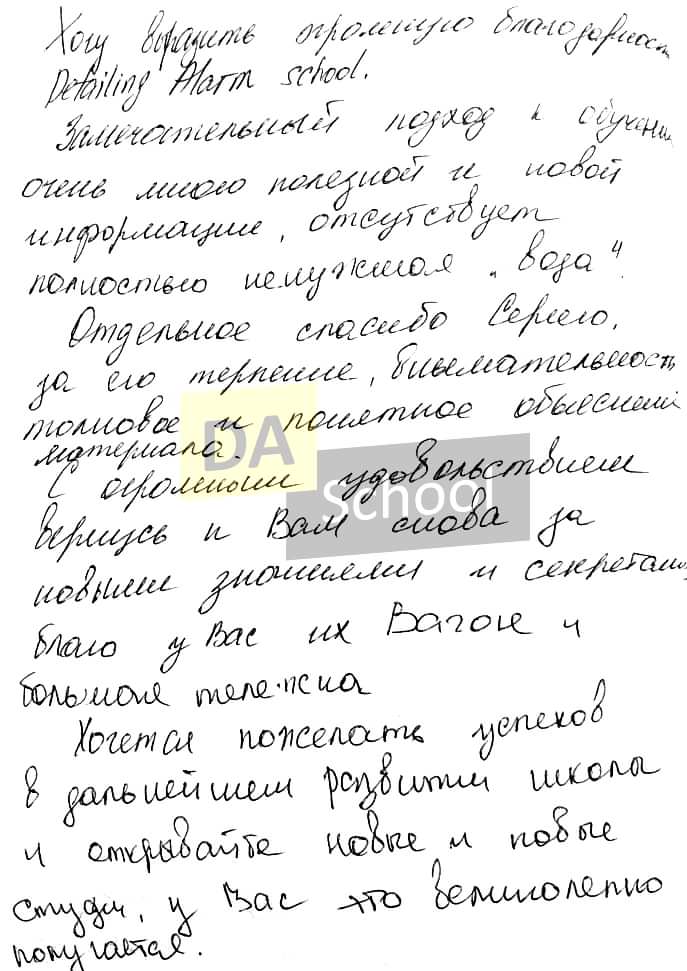 Хочу выразить огромную благодарность
Detailing Alarm school.
Замечательный подход к обучени
очень много полезной и новой
информации, отсутствует
полностью ненужная „вода“.
Отдельное спасибо Сергею,
за его терпение, внымательность
толковое и понятное объяснени
материала.
DA
С огромным удовольствием
School
вернусь к Вам снова за
новыми знаниями и секретами,
благо у Вас их Вагон и
большая тележка
Хочется пожелать успехов
в дальнейшем развитии школы
и открывайте новые и новые
студи, у Вас это великолепно
получается.